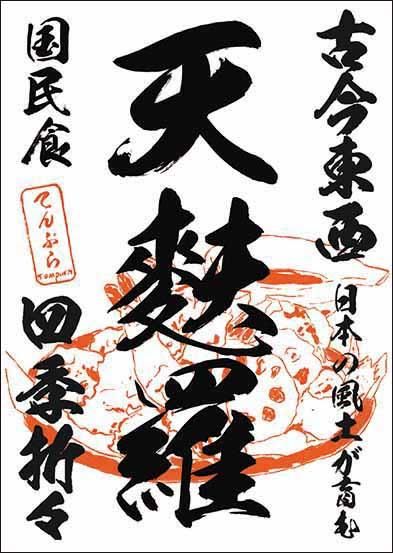 古今東西
日本の風土が育む
天麩羅
国民食
四季折々
てんぷら
TEMPURA